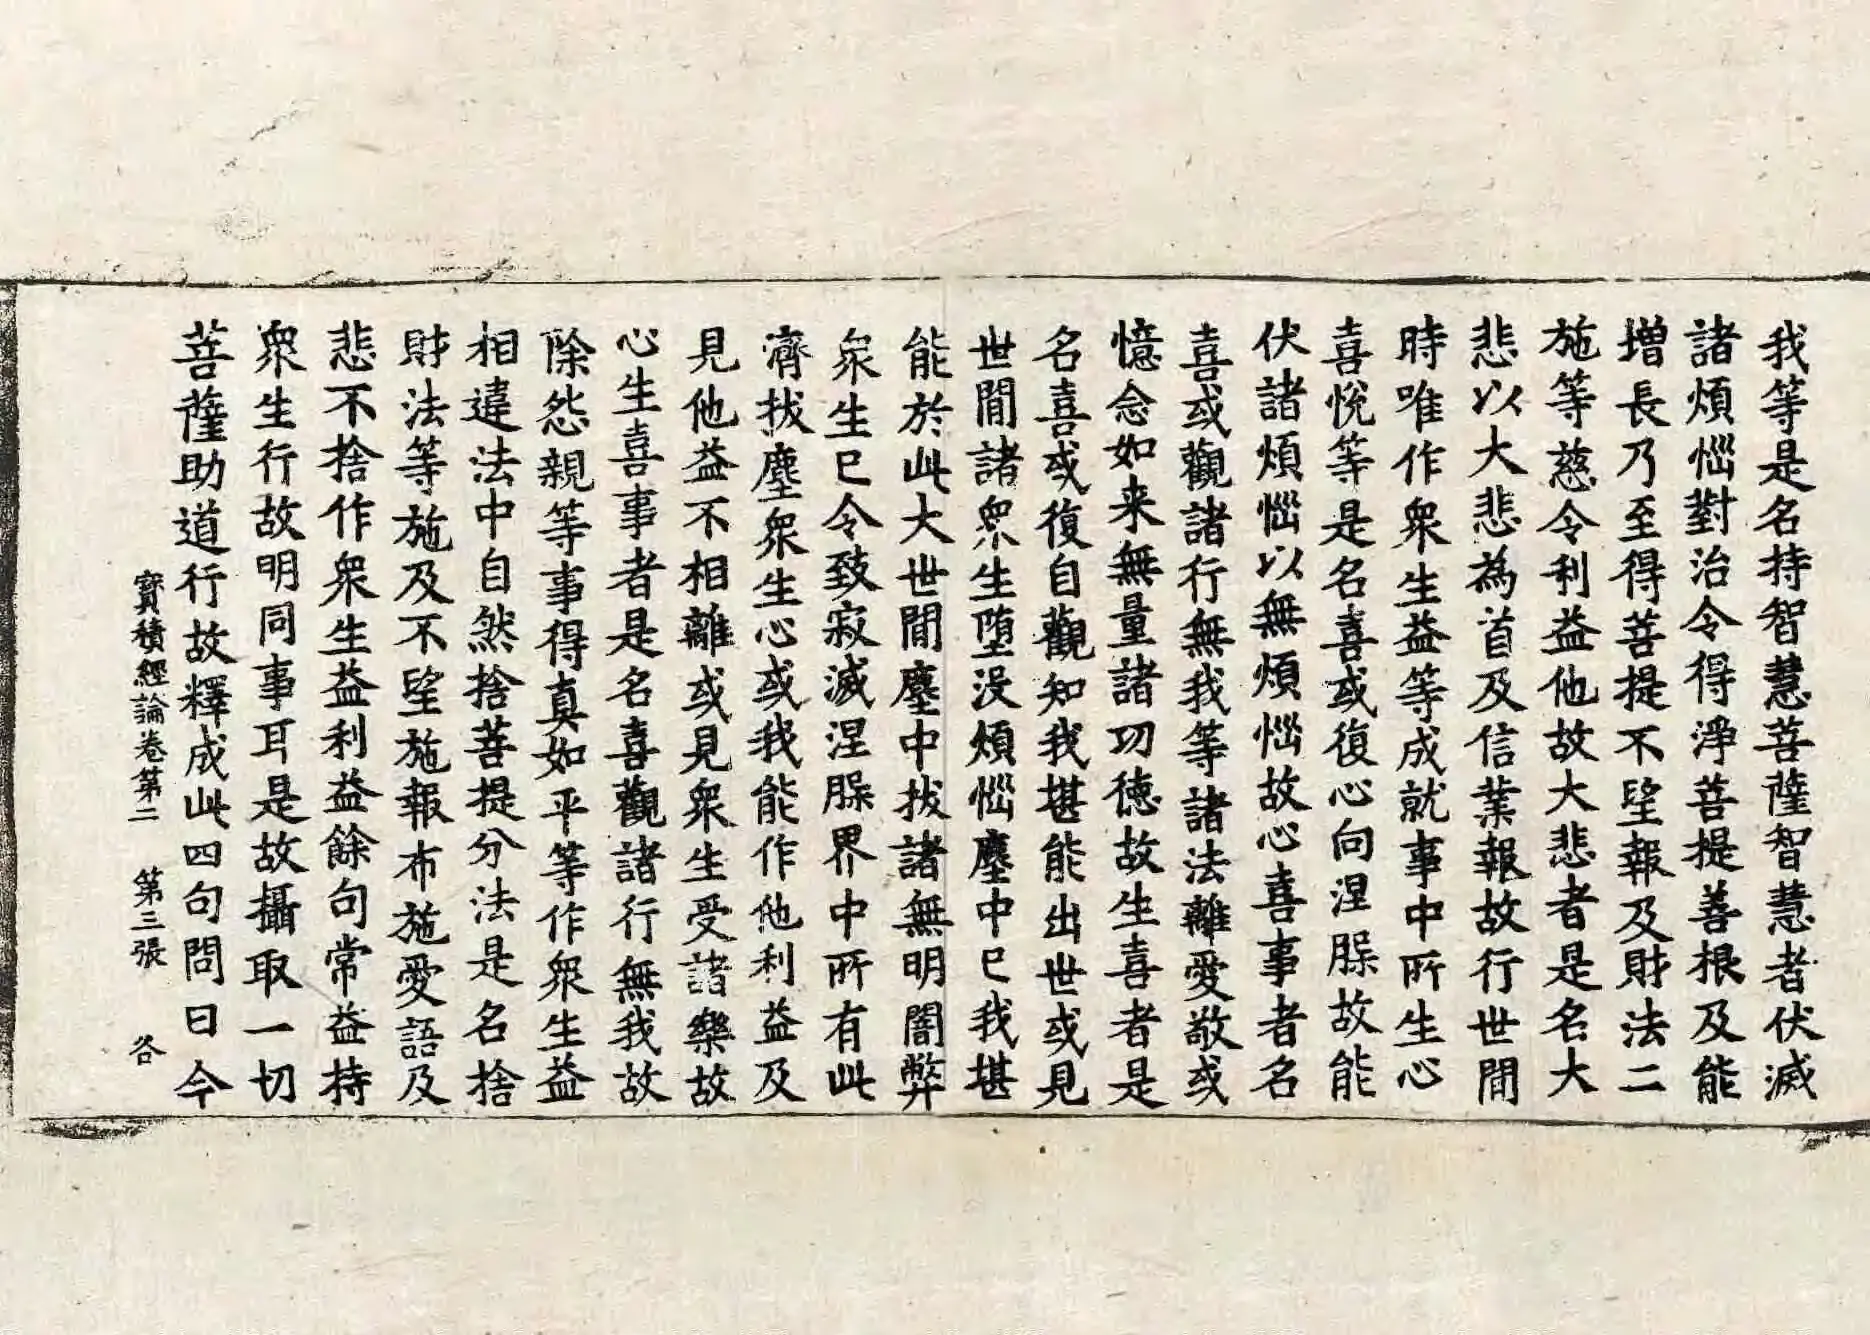 我等是名持智慧菩薩智慧者伏滅
諸煩惱對治令得淨菩提善根及能
增長乃至得菩提不望報及財法二
施等慈令利益他故大悲者是名大
悲以大悲為首及信業報故行世間
時唯作衆生益等成就事中所生心
喜悅等是名喜或復心向涅槃故能
伏諸煩惱以無煩惱故心喜事者名
喜或觀諸行無我等諸法離愛敬或
憶念如来無量諸功德故生喜者是
名喜或復自觀知我堪能出世或見
世間諸衆生墮没煩惱塵中已我堪
能於此大世間塵中拔諸無明闇弊
衆生已令致寂滅涅槃界中所有此
濟拔塵衆生心或我能作他利益及
見他益不相離或見衆生受諸樂故
心生喜事者是名喜觀諸行無我故
除怨親等事得真如平等作衆生益
相違法中自然捨菩提分法是名捨
財法等施及不望施報布施愛語及
悲不捨作衆生益利益餘句常益持
衆生行故明同事耳是故攝取一切
菩薩助道行故釋成此四句問曰今
寶積經論卷第二　第三張　各